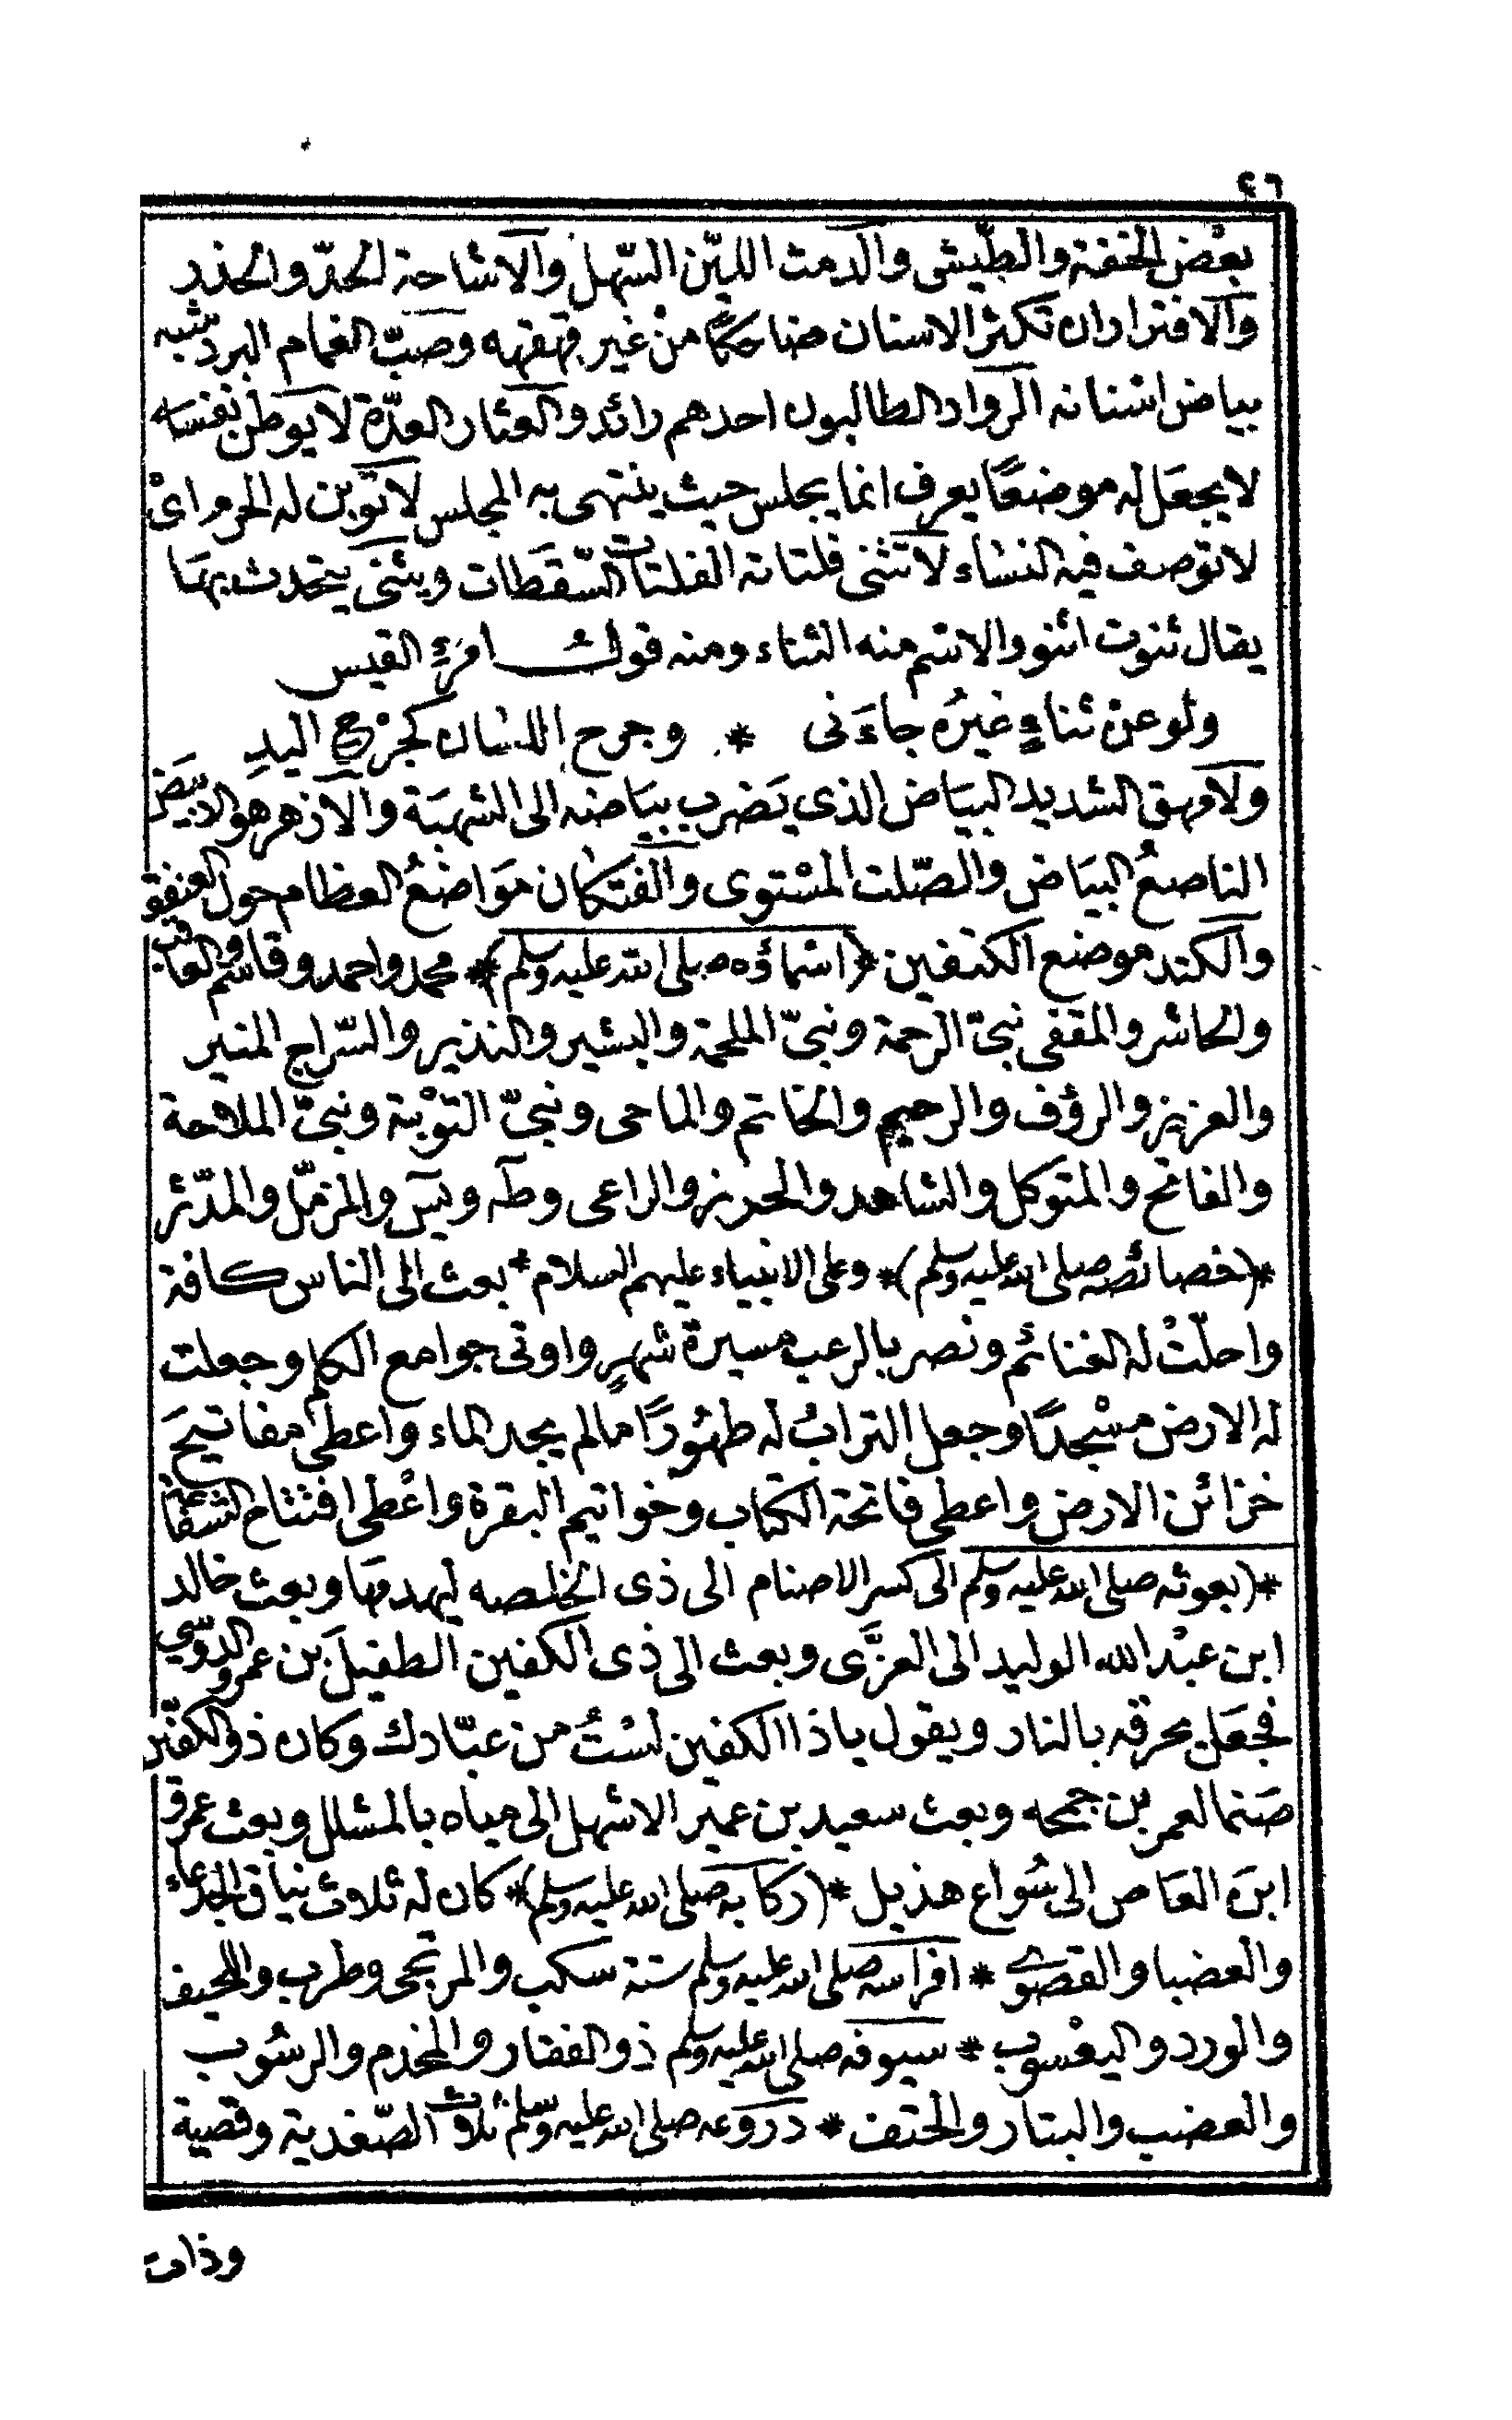 ٤٦
بعْض الخفة والطّيش والدمث الليّن السّهل والاشاحة الحدّ والحذر
والافترار ان تكثر الاسنان ضاحكًا منْ غير قهقهه وحَبّ الغمام البرد شبه
بياض اسنانه الرواد الطالبون احدهم رائد والعثار العدّة لا يوطن نفسه
لا يجعَل له موضعًا يعرف انما يجلس حيث ينتهى به المجلس لا تؤبن له الحرم اىْ
لا توصف فيه النسَاء لا تنثى فلتاته الفلتات السّقَطات وينثَى يتحدث بهَا
يقال نثوت انثو والاسم منه النثاء ومنه قولُ امرءِ القيس
ولو عنْ نثاءٍ غيرُه جاءَنى * وجرح اللسان كجرْح اليدِ
ولامهق الشديد البيَاض الذى يَضرب بيَاضه الى الشهبَة والازهر هو الابيَض
الناصعُ البيَاض والصّلت المسْتوى والفتكان مَوَاضعُ العظام حول العنفقة
والكتد موضع الكتفين ﴿اسْماؤه صلى الله عليه وسلم﴾* محمد واحمد وقاسم والعاقب
والحاشر والمقفى نبىّ الرحمة ونبىّ الملحمة والبشير والنذير والسّراج المنير
والعزيز والرؤف والرحيم والخاتم والماحى ونبىّ التوْبة ونبىّ الملاحة
والفاتح والمتوكل والشاهد والحريز والراعى وطه ويسٓ والمزمّل والمدّثر
*(خصائصه صلى الله عليه وسلم)* وعلى الانبياء عليهم السلام * بعث الى الناس كافة
واحلّتْ له الغنائم ونصر بالرعب مسيرة شهرٍ واوتى جوامع الكلم وجعلت
له الارض مسْجدًا وجعل الترابُ له طهُورًا ما لم يجد الماء واعطى مفاتيحَ
خزائن الارض واعطى فاتحة الكتاب وخواتيم البقرة واعْطى افتتاح الشفاعة
*(بعوثه صلى الله عليه وسلم الى كسر الاصنام الى ذى الخلصه ليهدمهَا وبعث خالد
ابن عبْد الله الوليد الى العزَّى وبعث الى ذى الكفين الطفيلَ بن عمرو الدوسّي
فجعَل يحرقه بالنار ويقول ياذا الكفين لسْتُ من عبّادك وكان ذو الكفّين
صَنما لعمر بن جمحمه وبعث سعيد بن عمير الاشهل الى مياه بالمشلل وبعث عمرو
ابنَ العَاص الى سُواع هذيل *(ركابه صلى الله عليه وسلم)* كان له ثلاث نيَاق الجدعاء
والعضبا والقصوى * افراسه صلى الله عليه وسلم ستة سكب والمرتجى وطرب واللحيف
والورد واليعْسوب * سيوفه صلى الله عليه وسلم ذو الفقار والمخذم والرسُوب
والعضب والبتار والحتف * دروعه صلى الله عليه وسلم ثلاث الصّغدية وقضية
وذات